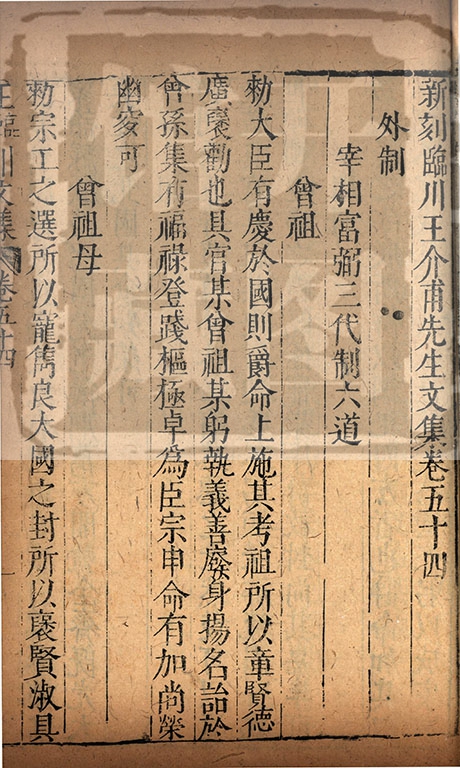 新刻臨川王介甫先生文集卷五十四
外制
宰相富弼三代制六道
曾祖
勑大臣有慶於國則爵命上施其考祖所以章賢德
廣襃勸也具官某曾祖某躬執義善廢身揚名詒於
曾孫集有福祿登踐樞極卓為臣宗申命有加尚榮
幽窀可
曾祖母
勑宗工之選所以寵雋良大國之封所以襃賢淑具
王臨川文集 卷五十四